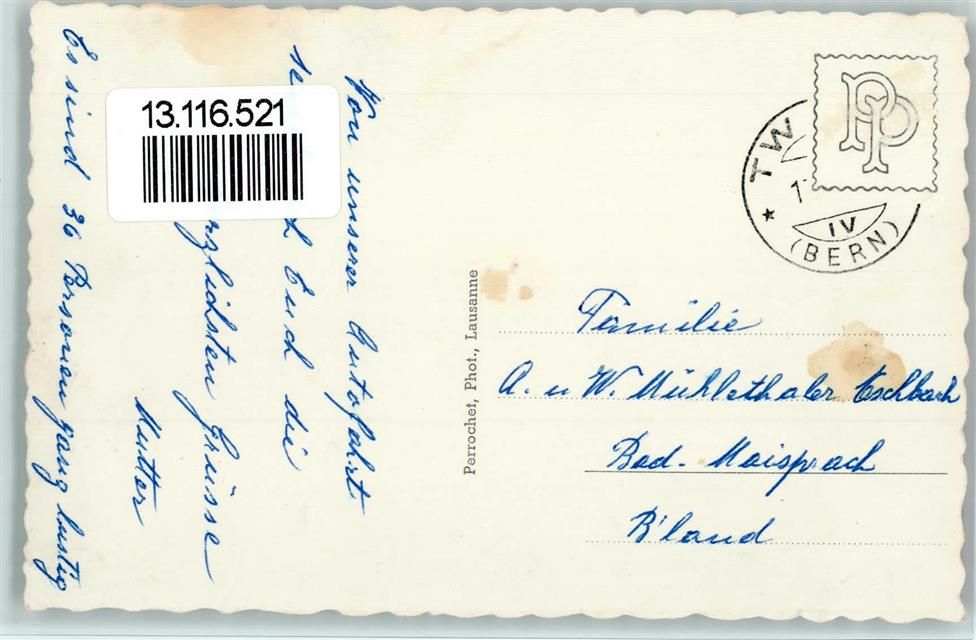 13.116.521
Von unserer Autofahrt
Euch die
herzlichsten Grüsse
Mutter
Es sind 36 Personen ganz lustig
Perrochet, Phot., Lausanne
PP
TW
IV
(BERN)
Familie
A. u W. Mühlethaler Eschbach
Bad-Maisprach
B'land